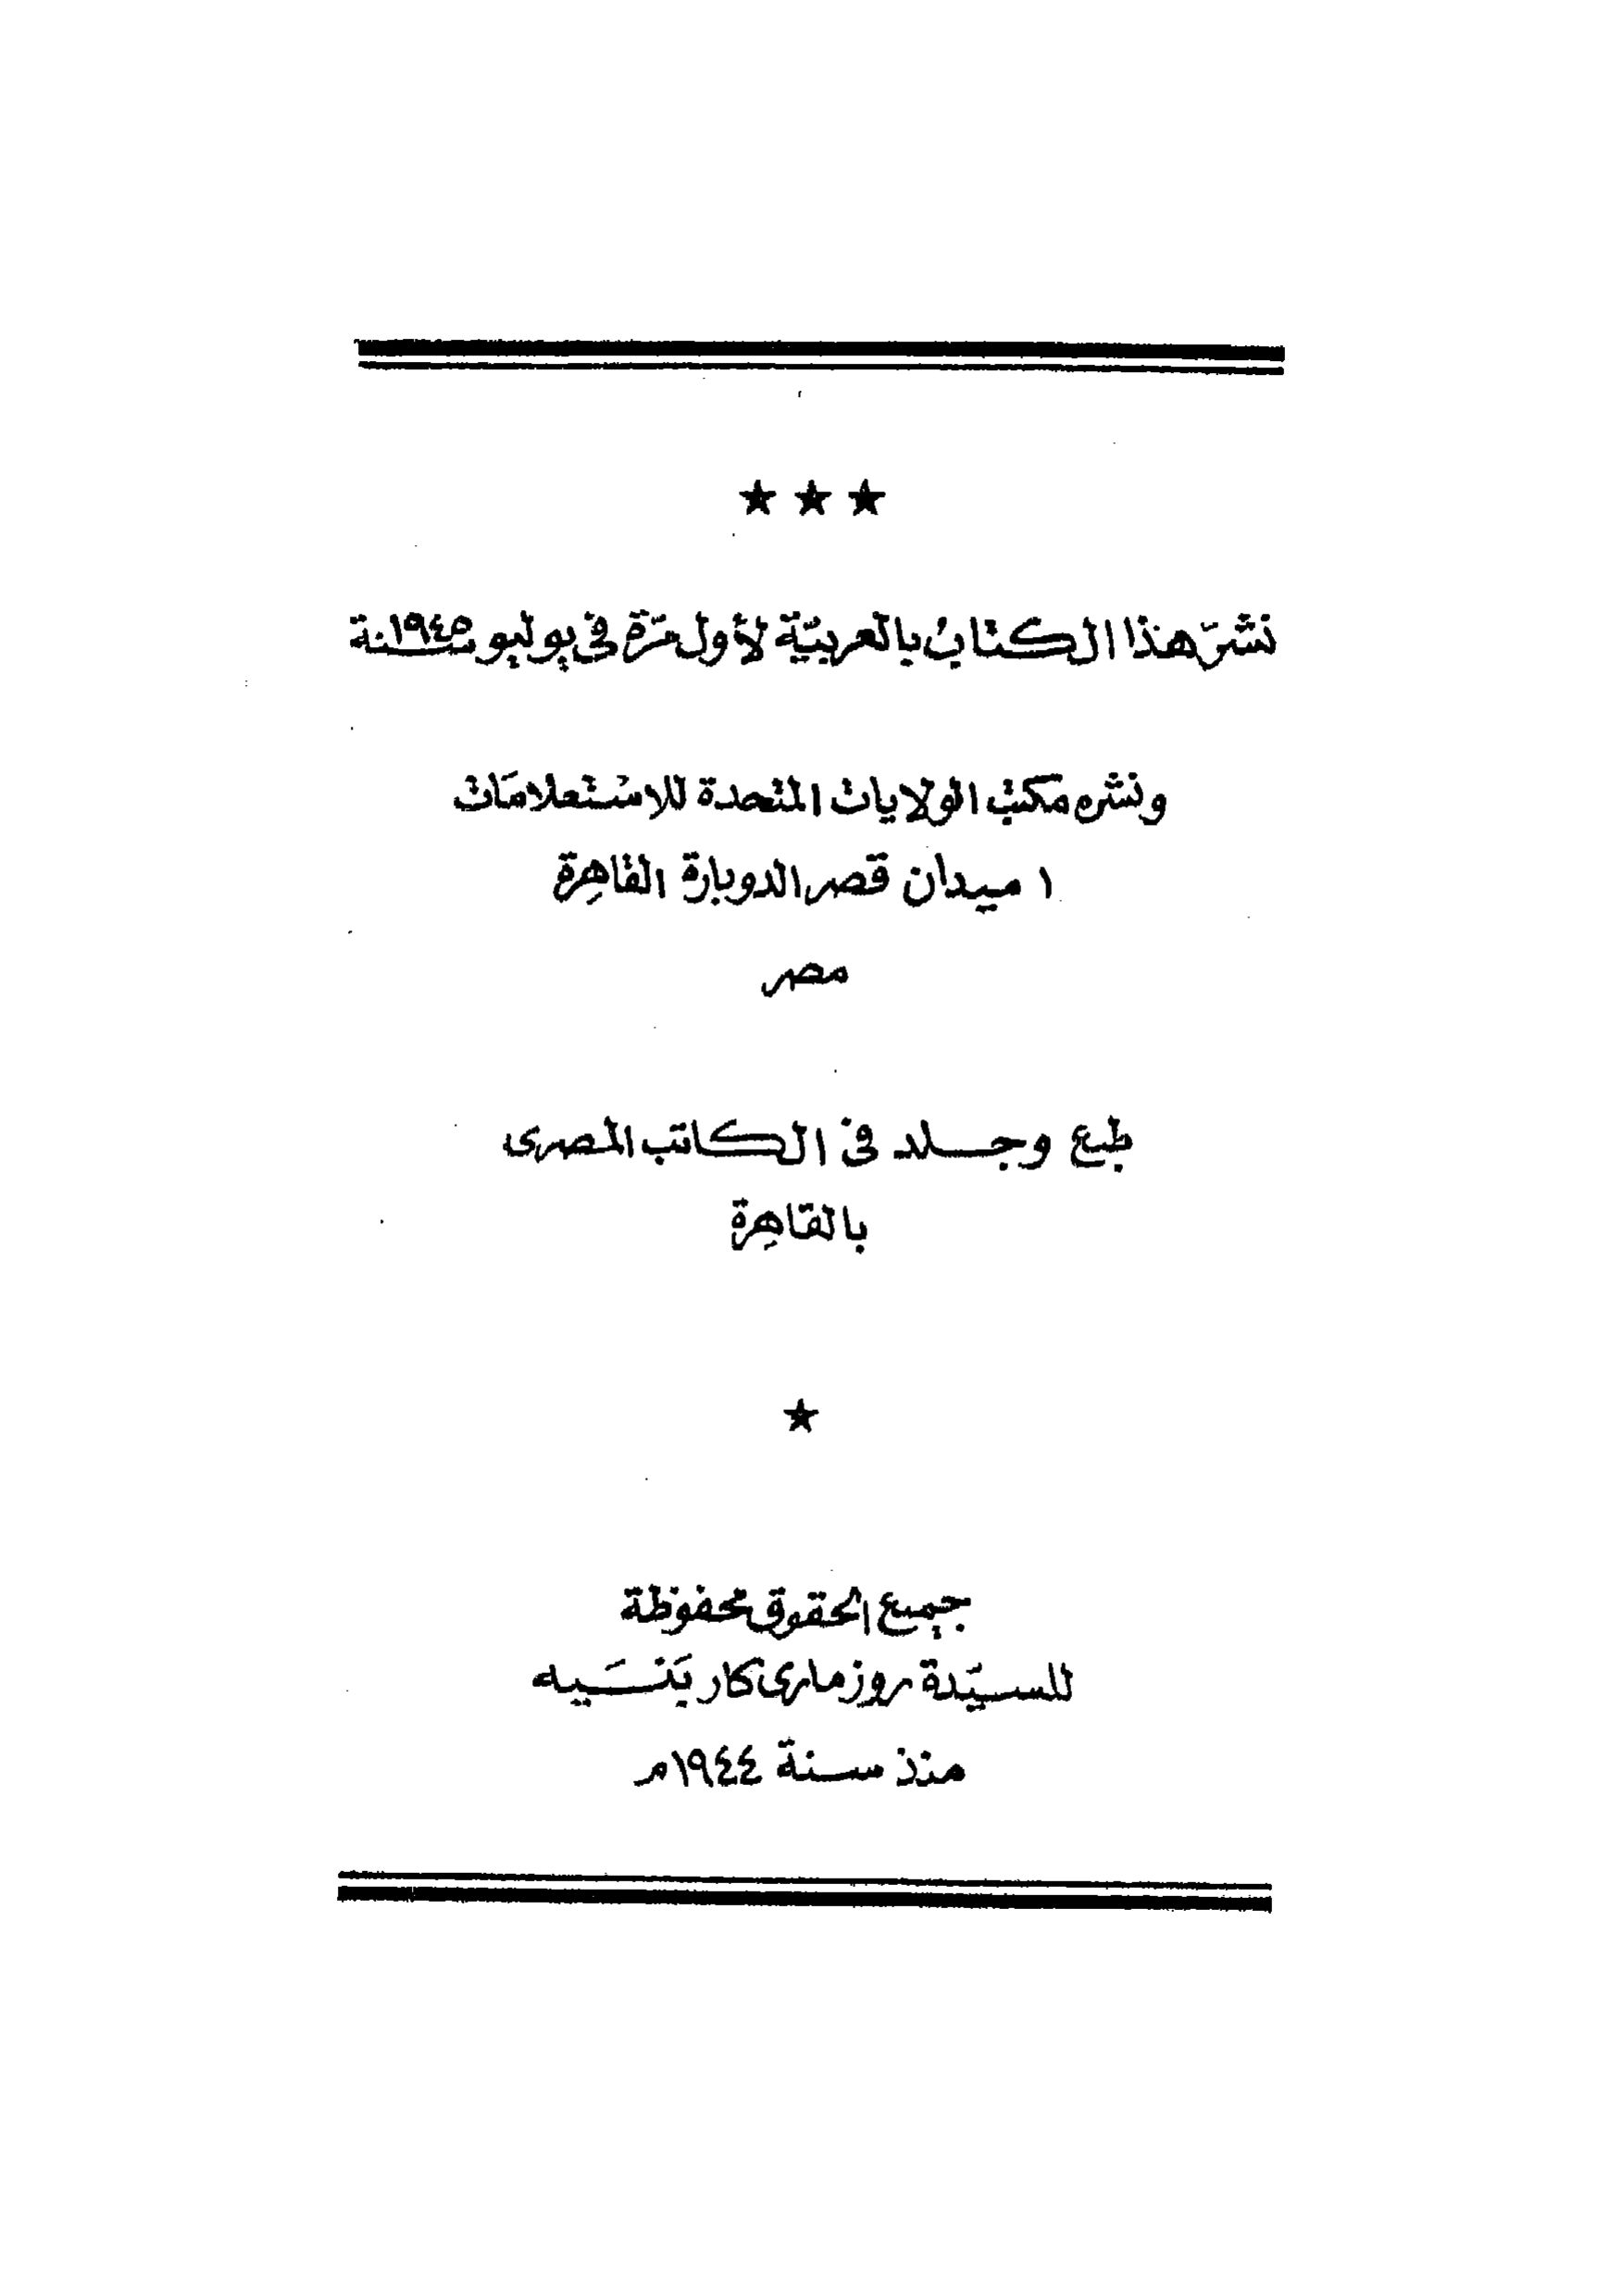 ★ ★ ★
نشر هذا الكتاب بالعربية لأول مرة في يوليو سنة ١٩٤٥
ونشره مكتب الولايات المتحدة للاستعلامات
١ ميدان قصر الدوبارة القاهرة
مصر
طبع وجلد في الكاتب المصرى
بالقاهرة
★
جميع الحقوق محفوظة
للسيدة روزمارى كاربنتييه
منذ سنة ١٩٤٤م